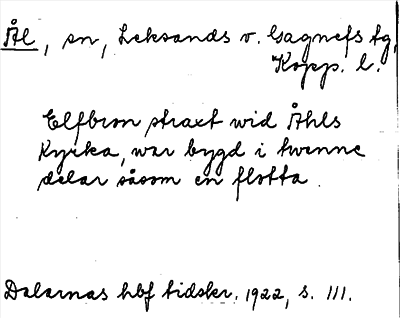 Ål, sn, Leksands o. Gagnefs tg,
Kopp. l.
Elfbron straxt wid Åhls
Kyrka, war bygd i twenne
delar såsom en flotta.
Dalarnas hbf tidskr. 1922, s. 111.